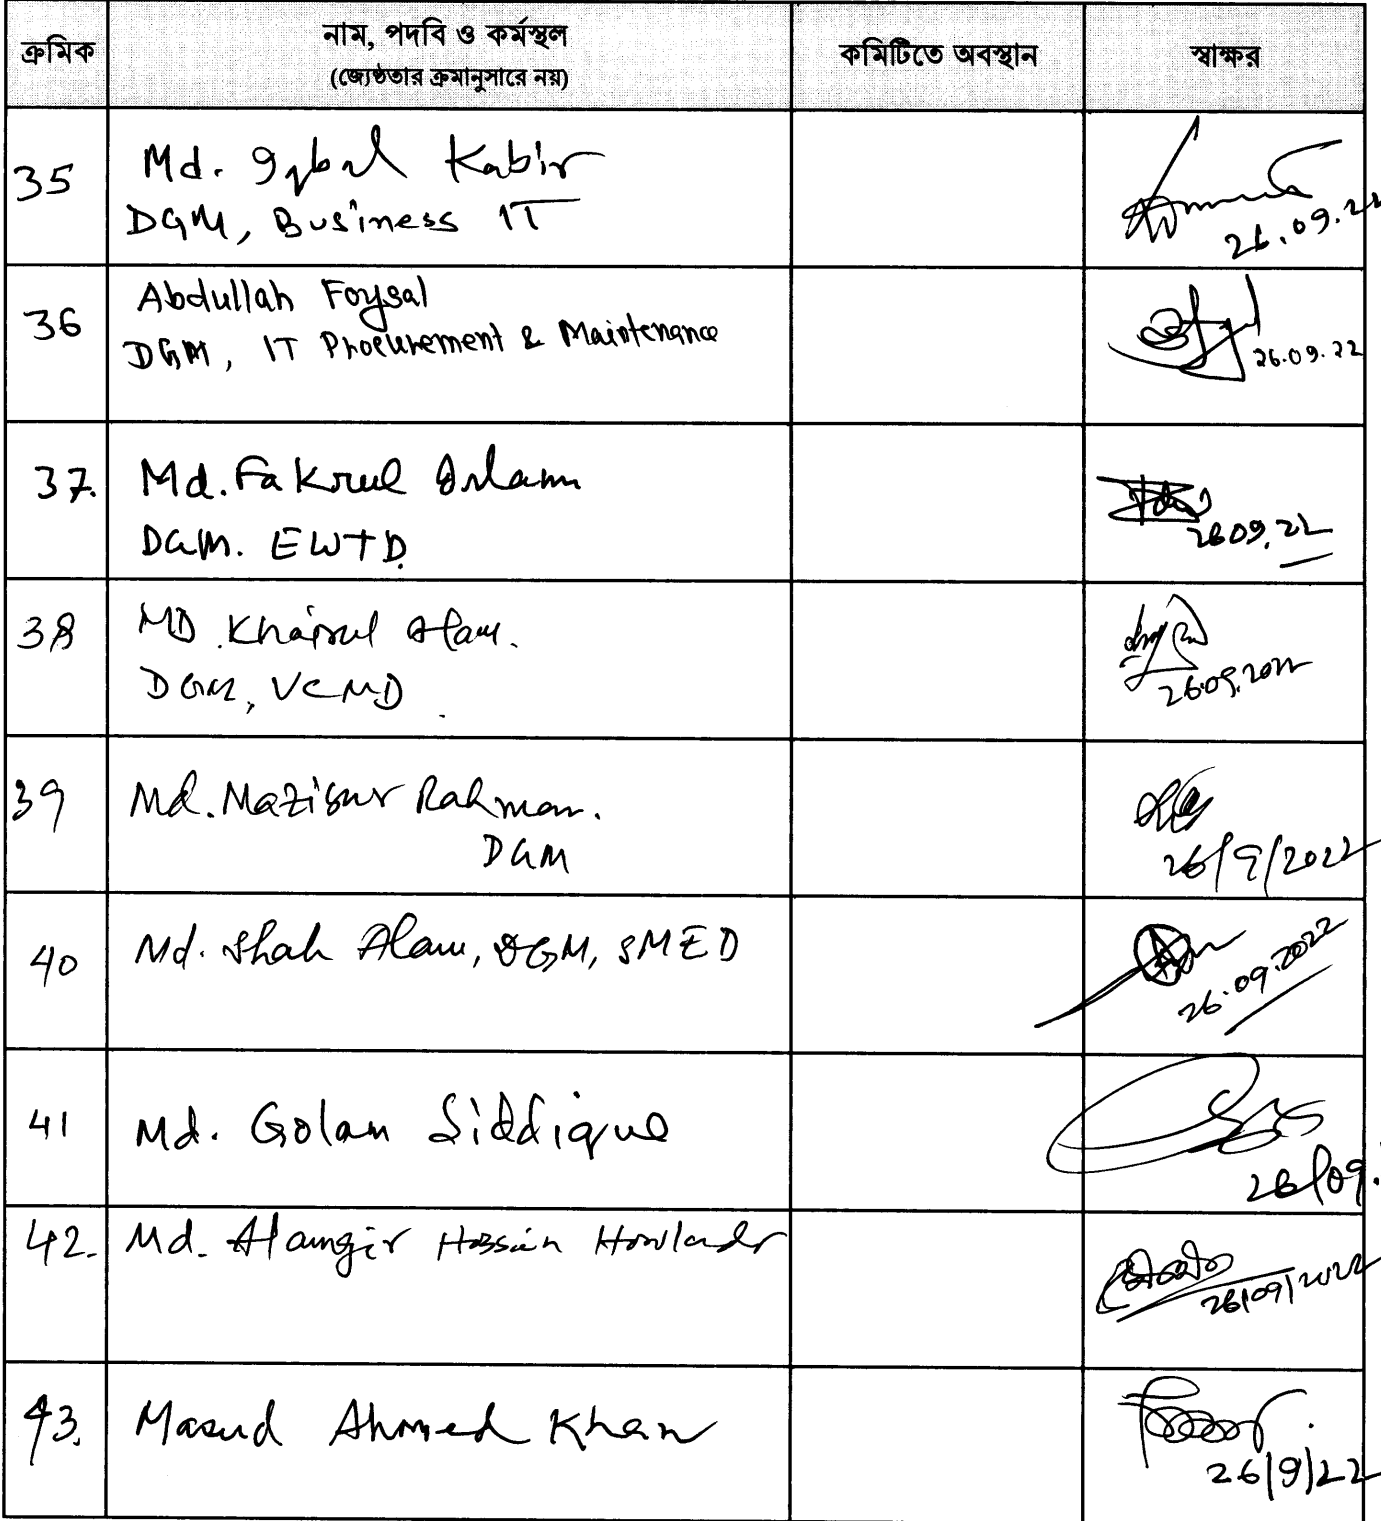 ক্রমিক
নাম, পদবি ও কর্মস্থল
(জ্যেষ্ঠতার ক্রমানুসারে নয়)
কমিটিতে অবস্থান
স্বাক্ষর
35
Md. Iqbal Kabir
DGM, Business IT
26.09.22
36
Abdullah Foysal
DGM, IT Procurement & Maintenance
26.09.22
37.
Md. Fakrul Islam
DGM. EWTD.
26.09.22
38
MD. Khairul Alam.
DGM, VCMD.
26.09.2022
39
Md. Mazibur Rahman.
DGM
26/9/2022
40
Md. Shah Alam, DGM, SMED
26.09.2022
41
Md. Golam Siddique
26/09.
42.
Md. Alamgir Hossain Howlader
26/09/2022
43.
Masud Ahmed Khan
26/9/22